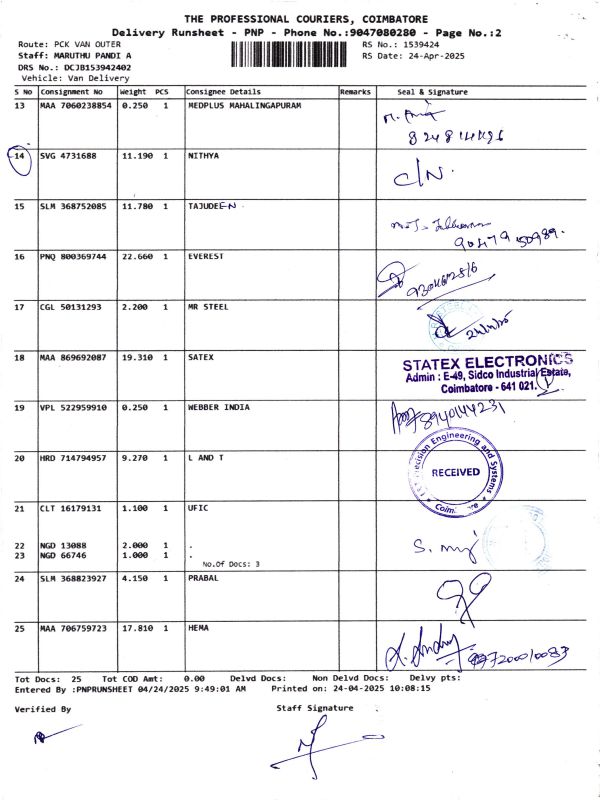 THE PROFESSIONAL COURIERS, COIMBATORE
Delivery Runsheet - PNP - Phone No.:9047080280 - Page No.:2
Route: PCK VAN OUTER RS No.: 1539424
Staff: MARUTHU PANDI A RS Date: 24-Apr-2025
DRS No.: DCJB153942402
Vehicle: Van Delivery
S No Consignment No Weight PCS Consignee Details Remarks Seal & Signature
13 MAA 7060238854 0.250 1 MEDPLUS MAHALINGAPURAM
14 SVG 4731688 11.190 1 NITHYA
C/N.
15 SLM 368752085 11.780 1 TAJUDEEN
90479 50989.
16 PNQ 800369744 22.660 1 EVEREST
17 CGL 50131293 2.200 1 MR STEEL
18 MAA 869692087 19.310 1 SATEX
STATEX ELECTRONICS
Admin : E-49, Sidco Industrial Estate,
Coimbatore - 641 021.
19 VPL 522959910 0.250 1 WEBBER INDIA
8940144231
20 HRD 714794957 9.270 1 L AND T
Engineering and Systems
RECEIVED
21 CLT 16179131 1.100 1 UFIC
22 NGD 13088 2.000 1 .
23 NGD 66746 1.000 1 .
No.Of Docs: 3
24 SLM 368823927 4.150 1 PRABAL
25 MAA 706759723 17.810 1 HEMA
Tot Docs: 25 Tot COD Amt: 0.00 Delvd Docs: Non Delvd Docs: Delvy pts:
Entered By :PNPRUNSHEET 04/24/2025 9:49:01 AM Printed on: 24-04-2025 10:08:15
Verified By Staff Signature